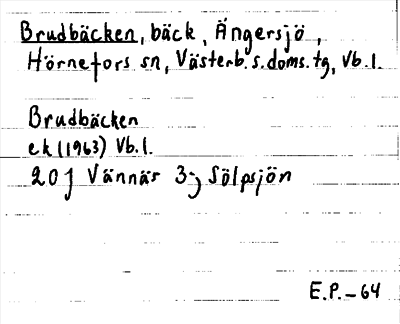 Brudbäcken, bäck, Ängersjö,
Hörnefors sn, Västerb. s. doms. tg, Vb. l.
Brudbäcken
ek (1963) Vb. l.
20 J Vännäs 3-j Sölpsjön
E.P. - 64